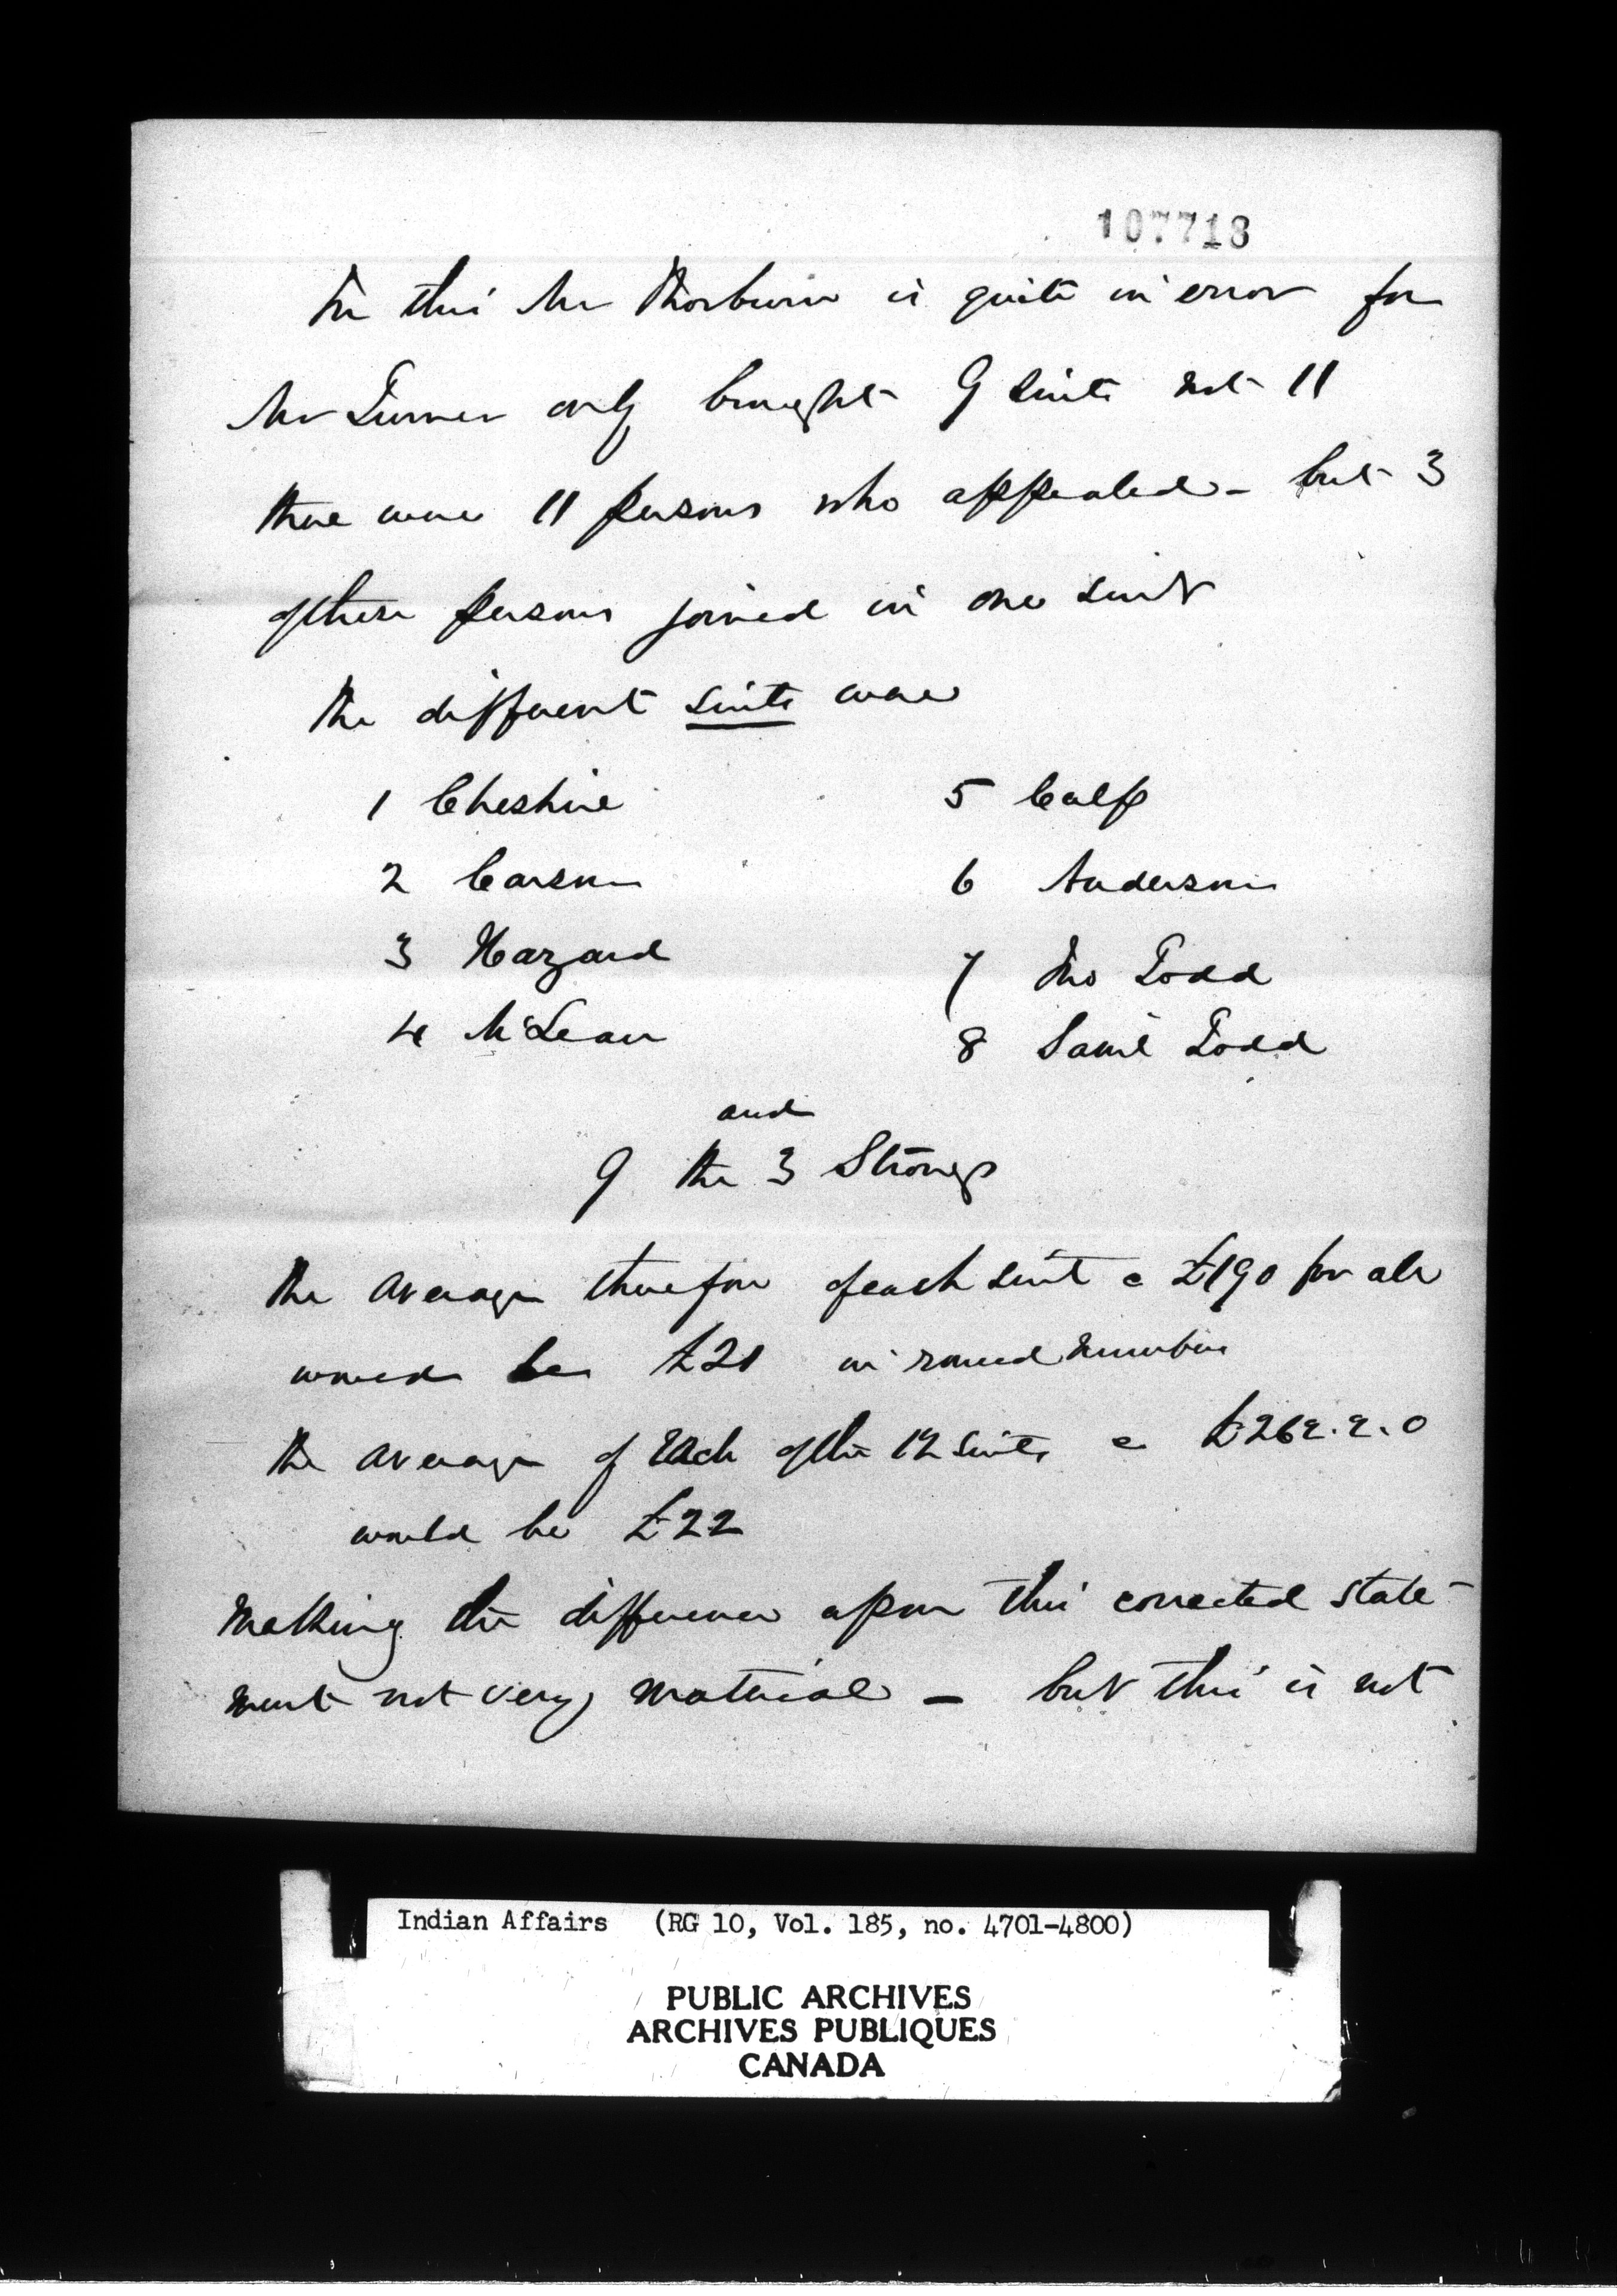 107718
In this Mr Thorburn is quite in error for
Mr Turner only brought 9 suits not 11
there were 11 persons who appealed - but 3
of these persons joined in one suit
The different suits were
1 Cheshire
2 Carson
3 Hazard
4 McLean
5 Calf
6 Anderson
7 Jno Todd
8 Saml Todd
and
9 the 3 Strongs
The average therefore of each suit @ £190 for all
would be £21 in round numbers
The average of each of the 12 suits @ £262.2.0
would be £22
Making the difference upon this corrected state-
ment not very material - but this is not
Indian Affairs (RG 10, Vol. 185, no. 4701-4800)
PUBLIC ARCHIVES
ARCHIVES PUBLIQUES
CANADA